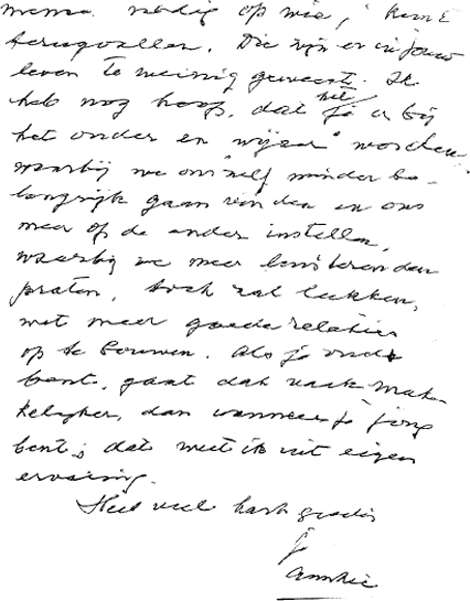 mens nodig op wie je kunt
terugvallen. Die zijn er in jouw
leven te weinig geweest. Ik
heb nog hoop, dat het je bij
het ouder en "wijzer" worden,
waarbij we ons zelf minder be-
langrijk gaan vinden en ons
meer op de ander instellen,
waarbij we meer luisteren dan
praten, toch zal lukken,
wat meer goede relaties
op te bouwen. Als je oud
bent, gaat dat vaak mak-
kelijker, dan wanneer je jong
bent; dat weet ik uit eigen
ervaring.
Heel veel hartegroeten
je